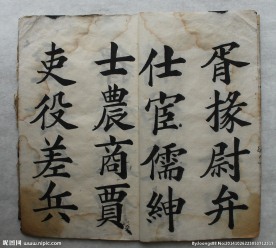 胥掾尉弁
仕宦儒紳
士農商賈
吏役差兵
昵图网 www.nipic.com